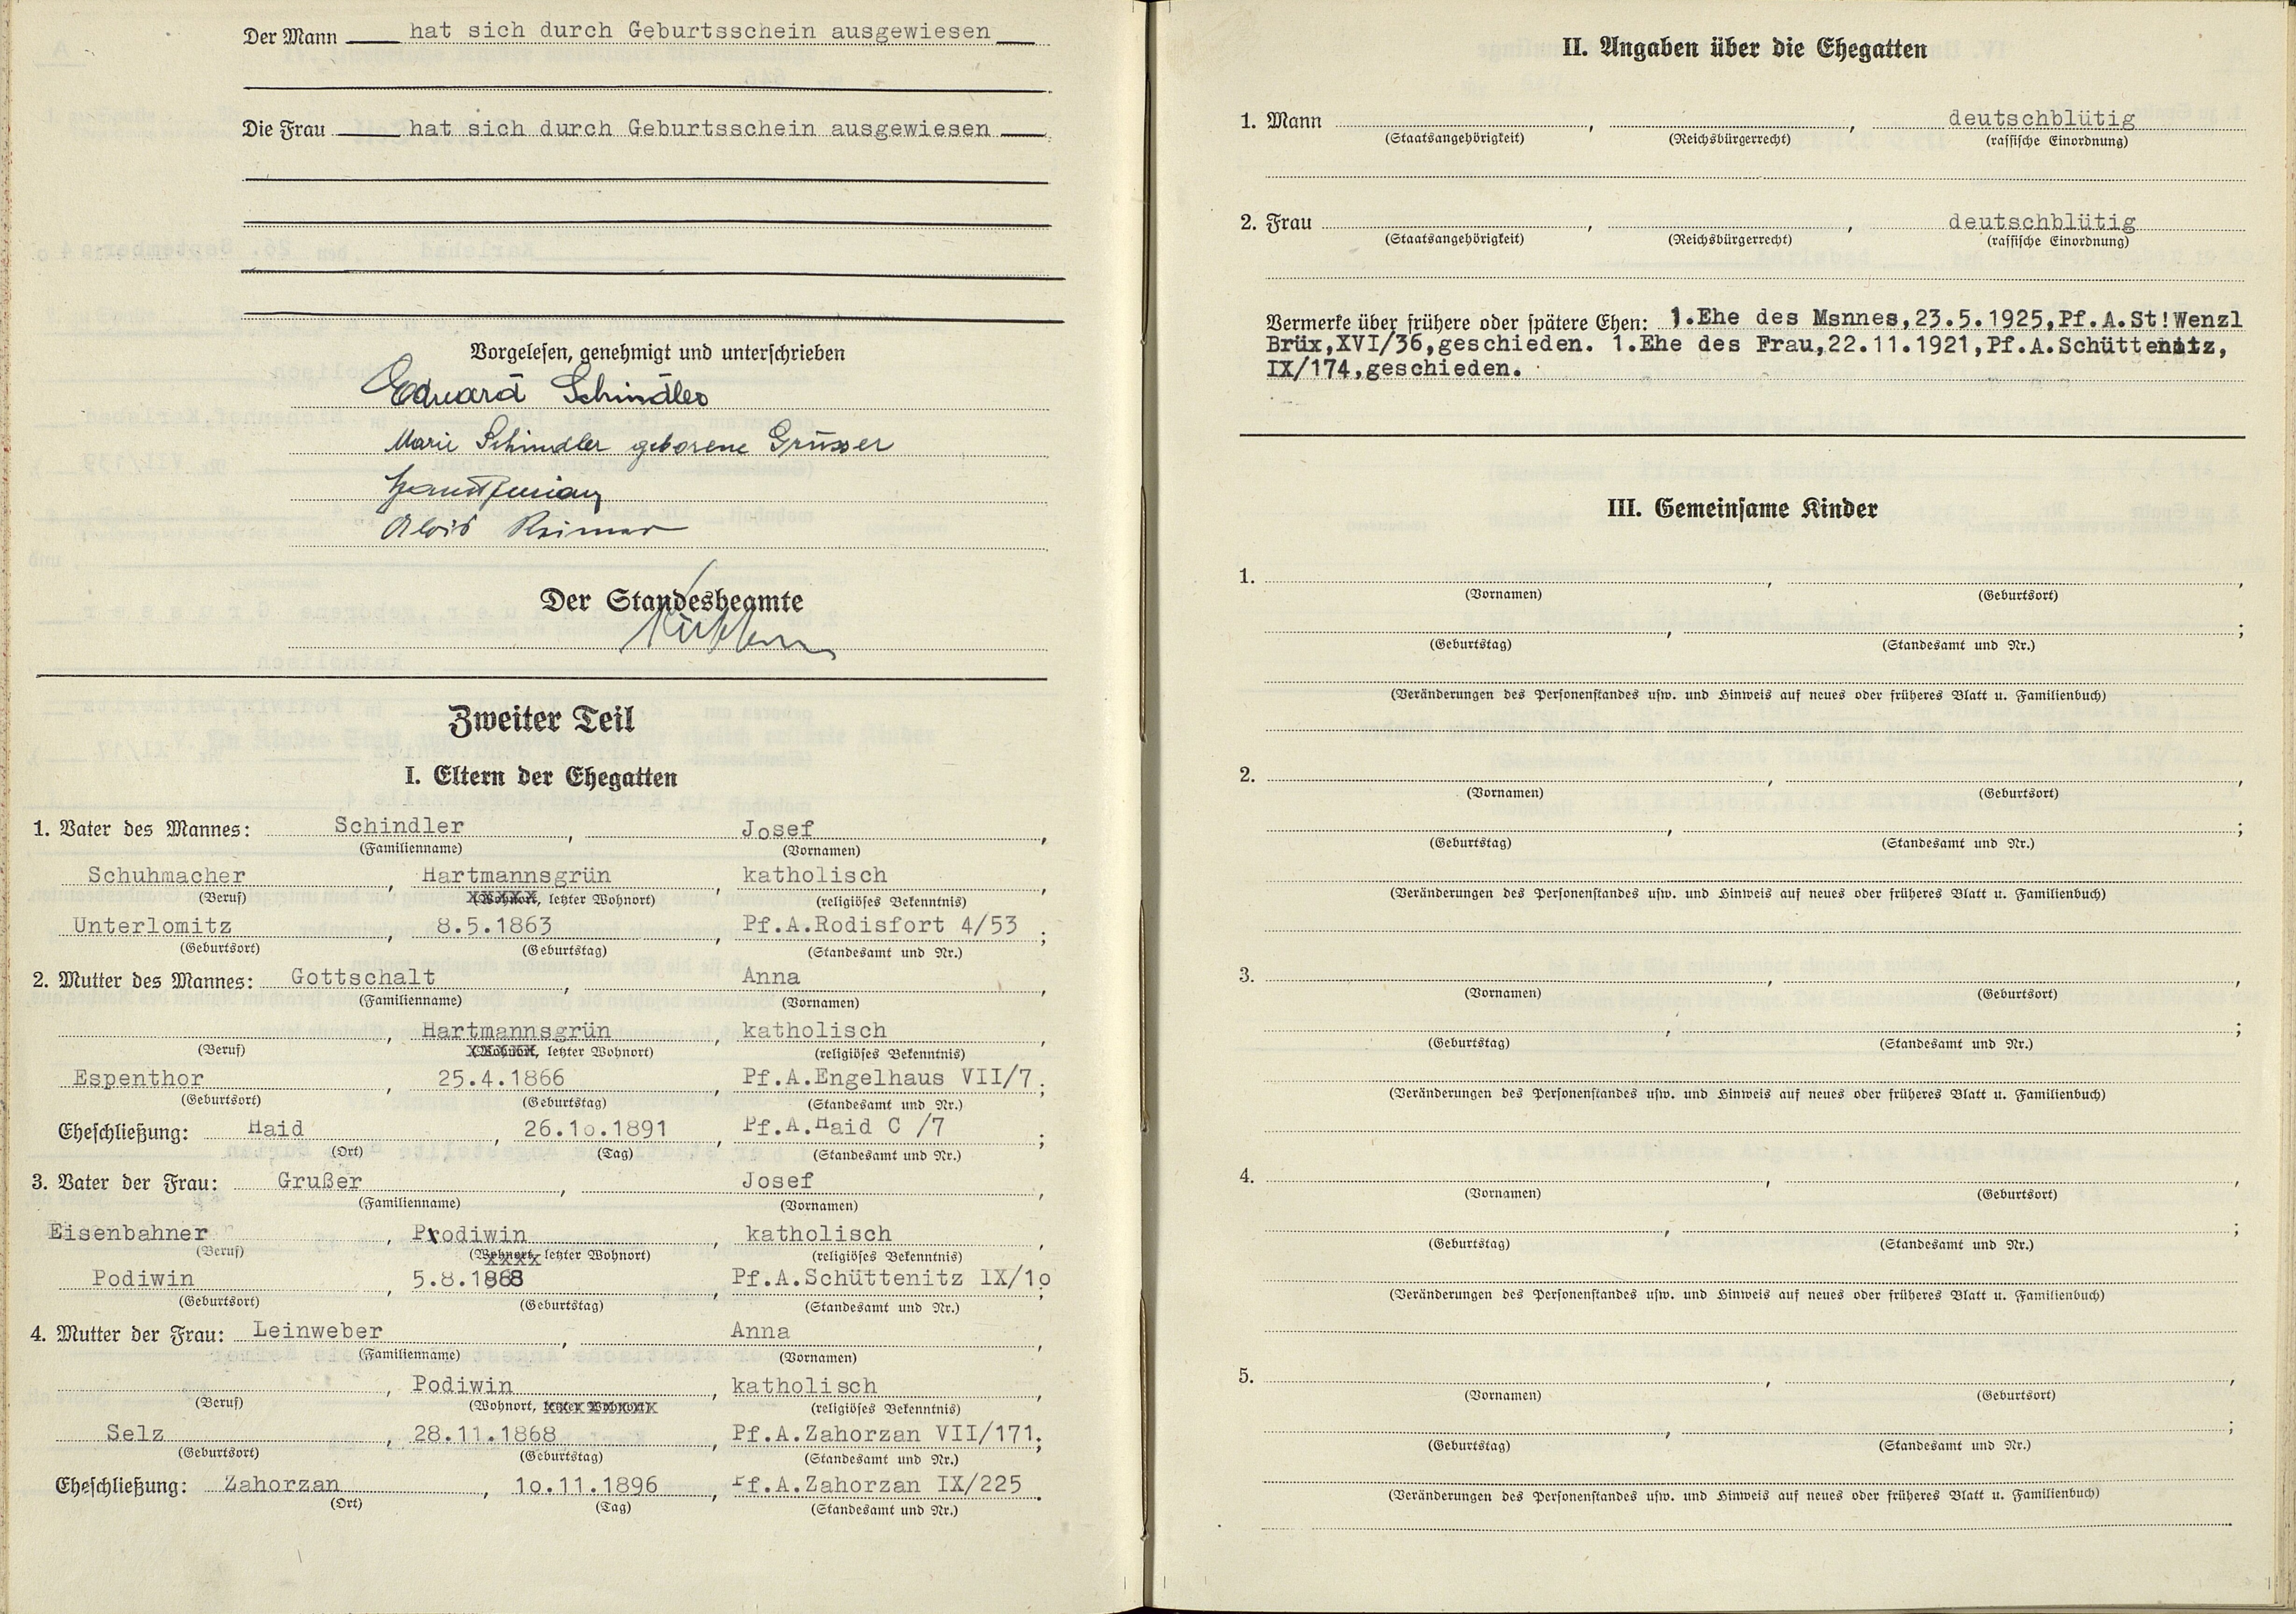 Der Mann hat sich durch Geburtsschein ausgewiesen
Die Frau hat sich durch Geburtsschein ausgewiesen
Vorgelesen, genehmigt und unterschrieben
Eduard Schindler
Marie Schindler geborene Grüsser
Alois Reimer
Der Standesbeamte
Zweiter Teil
I. Eltern der Ehegatten
1. Vater des Mannes: Schindler, Josef,
(Familienname) (Vornamen)
Schuhmacher, Hartmannsgrün, katholisch,
(Beruf) (Wohnort, letzter Wohnort) (religiöses Bekenntnis)
Unterlomitz, 8.5.1863, Pf.A.Rodisfort 4/53;
(Geburtsort) (Geburtstag) (Standesamt und Nr.)
2. Mutter des Mannes: Gottschalt, Anna,
(Familienname) (Vornamen)
, Hartmannsgrün, katholisch,
(Beruf) (Wohnort, letzter Wohnort) (religiöses Bekenntnis)
Espenthor, 25.4.1866, Pf.A.Engelhaus VII/7;
(Geburtsort) (Geburtstag) (Standesamt und Nr.)
Eheschließung: Haid, 26.1o.1891, Pf.A.Haid C /7;
(Ort) (Tag) (Standesamt und Nr.)
3. Vater der Frau: Grußer, Josef,
(Familienname) (Vornamen)
Eisenbahner, Prodiwin, katholisch,
(Beruf) (Wohnort, letzter Wohnort) (religiöses Bekenntnis)
Podiwin, 5.8.1868, Pf.A.Schüttenitz IX/1o;
(Geburtsort) (Geburtstag) (Standesamt und Nr.)
4. Mutter der Frau: Leinweber, Anna,
(Familienname) (Vornamen)
, Podiwin, katholisch,
(Beruf) (Wohnort, letzter Wohnort) (religiöses Bekenntnis)
Selz, 28.11.1868, Pf.A.Zahorzan VII/171;
(Geburtsort) (Geburtstag) (Standesamt und Nr.)
Eheschließung: Zahorzan, 1o.11.1896, Pf.A.Zahorzan IX/225.
(Ort) (Tag) (Standesamt und Nr.)
II. Angaben über die Ehegatten
1. Mann , , deutschblütig
(Staatsangehörigkeit) (Reichsbürgerrecht) (rassische Einordnung)
2. Frau , , deutschblütig
(Staatsangehörigkeit) (Reichsbürgerrecht) (rassische Einordnung)
Vermerke über frühere oder spätere Ehen: 1.Ehe des Msnnes,23.5.1925,Pf.A.St!Wenzl
Brüx,XVI/36,geschieden. 1.Ehe des Frau,22.11.1921,Pf.A.Schüttenitz,
IX/174,geschieden.
III. Gemeinsame Kinder
1. , ,
(Vornamen) (Geburtsort)
, ;
(Geburtstag) (Standesamt und Nr.)
(Veränderungen des Personenstandes usw. und Hinweis auf neues oder früheres Blatt u. Familienbuch)
2. , ,
(Vornamen) (Geburtsort)
, ;
(Geburtstag) (Standesamt und Nr.)
(Veränderungen des Personenstandes usw. und Hinweis auf neues oder früheres Blatt u. Familienbuch)
3. , ,
(Vornamen) (Geburtsort)
, ;
(Geburtstag) (Standesamt und Nr.)
(Veränderungen des Personenstandes usw. und Hinweis auf neues oder früheres Blatt u. Familienbuch)
4. , ,
(Vornamen) (Geburtsort)
, ;
(Geburtstag) (Standesamt und Nr.)
(Veränderungen des Personenstandes usw. und Hinweis auf neues oder früheres Blatt u. Familienbuch)
5. , ,
(Vornamen) (Geburtsort)
, ;
(Geburtstag) (Standesamt und Nr.)
(Veränderungen des Personenstandes usw. und Hinweis auf neues oder früheres Blatt u. Familienbuch)